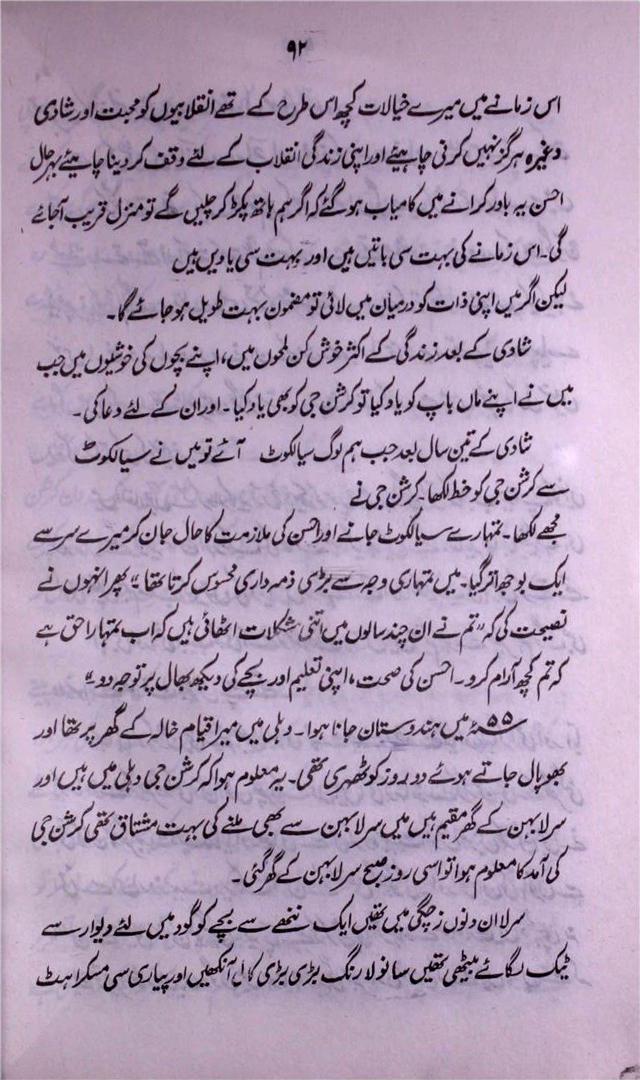 ۹۲
اس زمانے میں میرے خیالات کچھ اس طرح کے تھے انقلابیوں کو محبت اور شادی
وغیرہ ہرگز نہیں کرنی چاہیئے اور اپنی زندگی انقلاب کے لئے وقف کر دینا چاہیئے بہرحال
احسن یہ باور کرانے میں کامیاب ہو گئے کہ اگر ہم ہاتھ پکڑ کر چلیں گے تو منزل قریب آجائے
گی۔ اس زمانے کی بہت سی باتیں ہیں اور بہت سی یادیں ہیں
لیکن اگر میں اپنی ذات کو درمیان میں لائی تو مضمون بہت طویل ہو جائے گا۔
شادی کے بعد زندگی کے اکثر خوش کن لمحوں میں، اپنے بچوں کی خوشیوں میں جب
میں نے اپنے ماں باپ کو یاد کیا تو کرشن جی کو بھی یاد کیا۔ اور ان کے لئے دعا کی۔
شادی کے تین سال بعد جب ہم لوگ سیالکوٹ آئے تو میں نے سیالکوٹ
سے کرشن جی کو خط لکھا۔ کرشن جی نے
مجھے لکھا۔ تمہارے سیالکوٹ جانے اور احسن کی ملازمت کا حال جان کر میرے سر سے
ایک بوجھ اتر گیا۔ میں تمہاری وجہ سے بڑی ذمہ داری محسوس کرتا تھا" پھر انہوں نے
نصیحت کی کہ "تم نے ان چند سالوں میں اتنی مشکلات اٹھائی ہیں کہ اب تمہارا حق ہے
کہ تم کچھ آرام کرو۔ احسن کی صحت، اپنی تعلیم اور بچے کی دیکھ بھال پر توجہ دو۔"
۵۵ء میں ہندوستان جانا ہوا۔ دہلی میں میرا قیام خالہ کے گھر پر تھا اور
بھوپال جاتے ہوئے دو روز کو ٹھہری تھی۔ یہ معلوم ہوا کہ کرشن جی دہلی میں ہیں اور
سرلا بہن کے گھر مقیم ہیں میں سرلا بہن سے بھی ملنے کی بہت مشتاق تھی کرشن جی
کی آمد کا معلوم ہوا تو اسی روز صبح سرلا بہن کے گھر گئی۔
سرلا ان دنوں زچگی میں تھیں ایک ننھے سے بچے کو گود میں لئے دیوار سے
ٹیک لگائے بیٹھی تھیں سانولا رنگ بڑی بڑی کالی آنکھیں اور پیاری سی مسکراہٹ